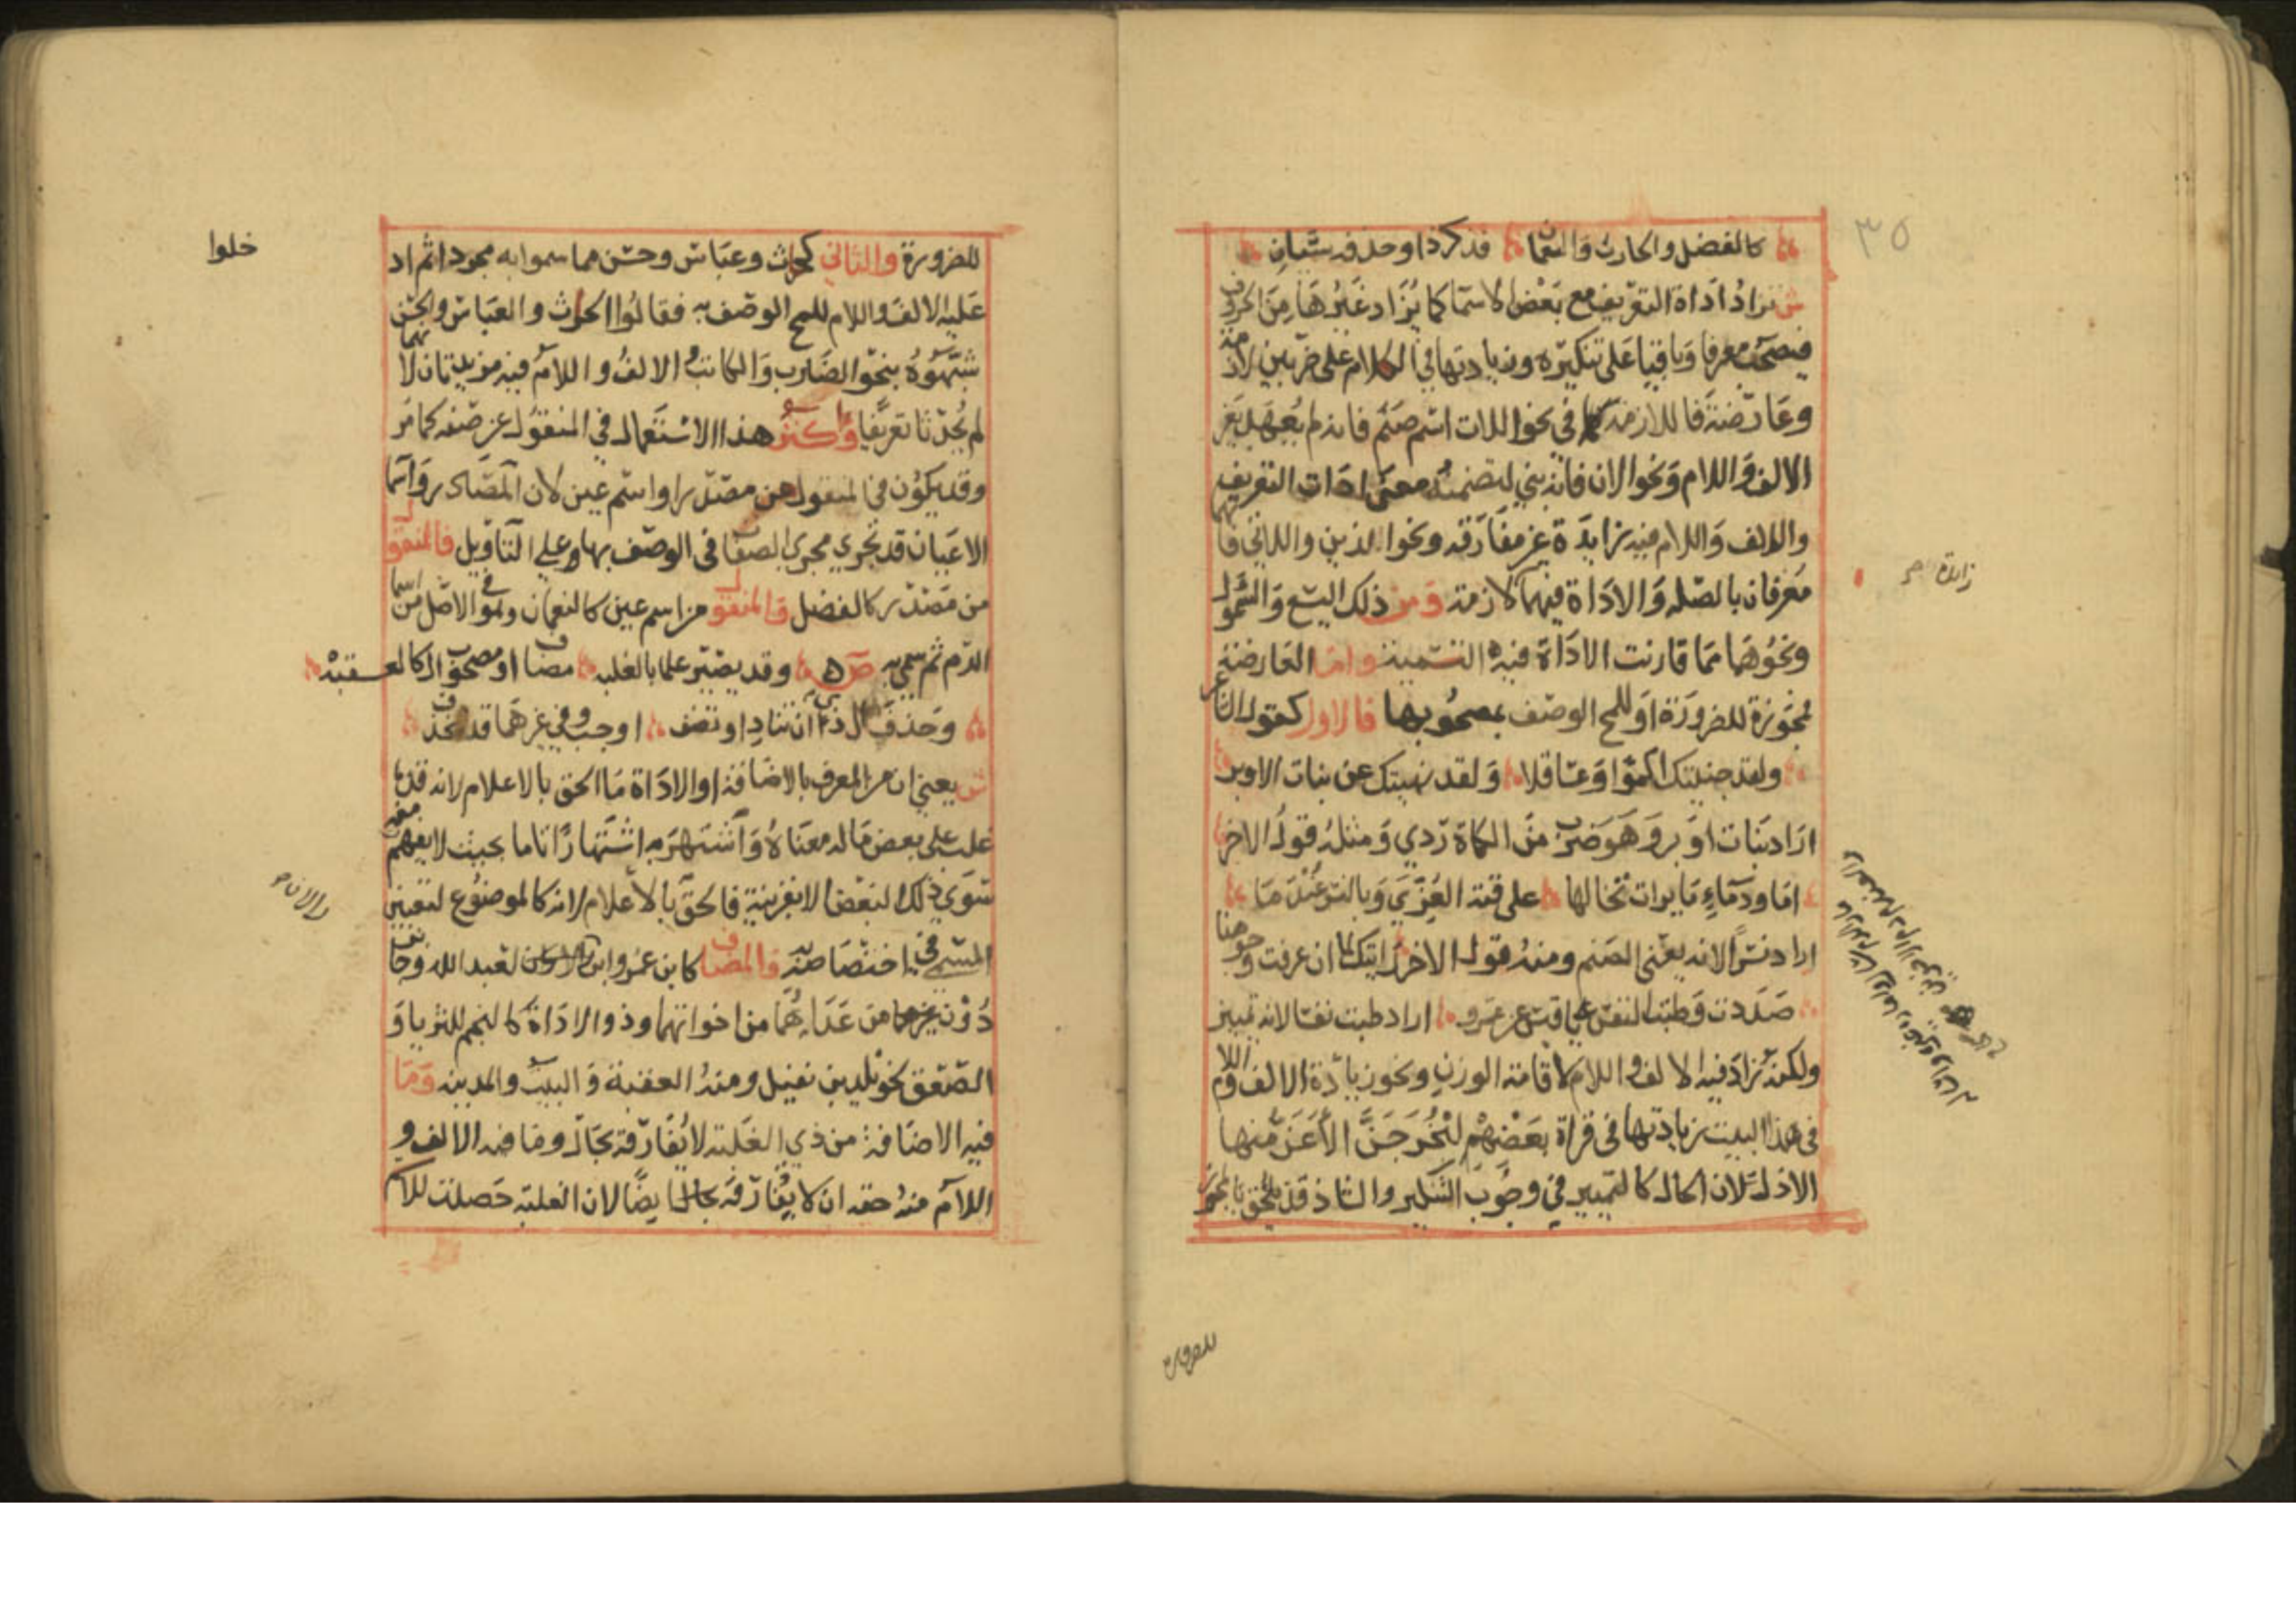 ٣٥
كالفضل والحارث والنعمان فذكر ذا وحذفه سيان
ش تزاد اداة التعريف مع بعض الاسما كما يزاد غيرها من الحروف
فيصحب معرفا وباقيا على تنكيره وزيادتها في الكلام على ضربين لازمة
وعارضة فاللازمة كما في نحو اللات اسم صنم فانه لم يعهد بغير
الالف واللام ونحو الان فانه بني لتضمنه معنى ادات التعريف
والالف واللام فيه زايدة غير مفارقة ونحو الذين واللاتي فانهما
معرفان بالصله والاداة فيهما لازمة ومن ذلك اليسع والسمول
ونحوهما مما قارنت الاداة فيه التسمية واما العارضة
فمجوزة للضرورة او للمح الوصف بمصحوبها فالاول كقول الشاعر
ولقد جنيتك اكموا وعساقلا ولقد نهيتك عن بنات الاوبر
اراد بنات اوبر وهو ضرب من الكماة ردي ومثله قول الاخر
اما ودماء مايرات تخالها على قنة العزي وبالنسر عندما
اراد نسرا لانه يعني الصنم ومنه قول الاخر رايتك لما ان عرفت وجوهنا
صددت وطبت النفس يا قيس عن عمرو اراد طبت نفسا لانه تمييز
ولكنه زاد فيه الالف واللام لاقامة الوزن ونحو زيادة الالف واللام
في هذا البيت زيادتها في قراة بعضهم ليخرجن الاعز منها
الاذل لان الحال كالتمييز في وجوب التنكير والشاذ قد يلحق بالمجوز
زايدة صح
للضرورة
للضرورة والثاني كحارث وعباس وحسن مما سموا به مجردا ثم اد
عليه الالف واللام للمح الوصف به فقالوا الحارث والعباس والحسن
شبهوه بنحو الضارب والكاتب الالف واللام فيه مزيدتان لانهما
لم يحدثا تعريفا واكثر هذا الاستعمال في المنقول عن صفه كما مر
وقد يكون في المنقول من مصدر او اسم عين لان المصادر واسما
الاعيان قد تجري مجرى الصفات في الوصف بها وعلى التاويل فالمنقول
من مصدر كالفضل والمنقول من اسم عين كالنعمان وهو في الاصل من اسما
الدم ثم سمي به ص وقد يصير علما بالغلبه مضاف او مصحوب ال كالعقبه
وحذف ال ذي ان تناد او تضف اوجب وفي غيرهما قد تنحذف
ش يعني ان من المعرف بالاضافة او الاداة ما الحق بالاعلام لانه قد
غلب على بعض ما له معناه واشتهر به اشتهارا تاما بحيث لا يفهم منه
سوى ذلك البعض الا بقرينة فالحق بالاعلام لانه كالموضوع لتعيين
المسمى في اختصاصه به والمضاف كابن عمر وابن لعبد الله وجابر
دون غيرهما من عداهما من اخواتهما وذو الاداة كالنجم للثريا و
الصعق لخويلد بن نفيل ومنه العقبة والبيت والمدينه وما
فيه الاضافة من ذي الغلبه لا يفارقه بحال وما فيه الالف و
اللام منه حقه ان لا يفارقه بحال ايضا لان الغلبة حصلت للاسم
خلوا